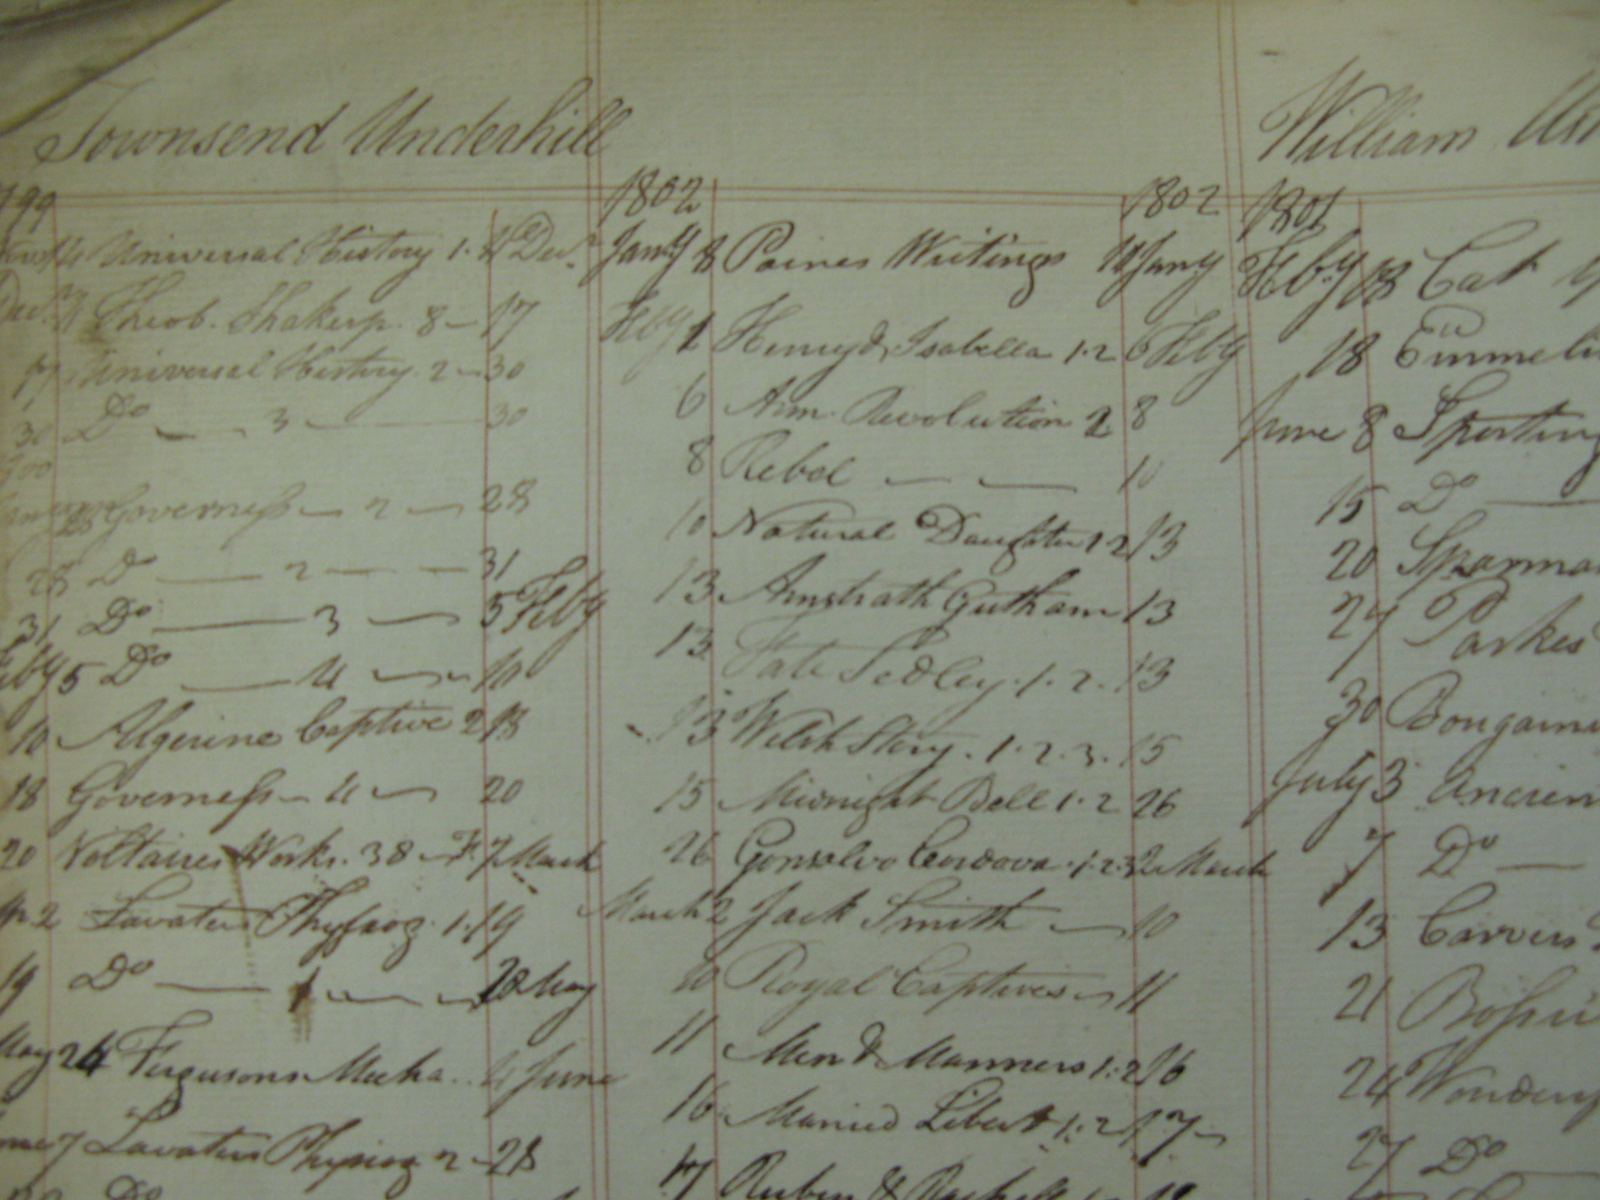 Townsend Underhill
1799
Universal History 1. 4 Decr
Theob. Shakesp. 8 — 17
17 Universal History. 2 — 30
30 Do — 3 — 30
Governess — 2 — 28
28 Do — 2 — 31
31 Do — 3 — 5 Feby
Feby 5 Do — 4 — 10
10 Algerine Captive 2 18
18 Governess — 4 — 20
20 Voltaires Works. 38 — F. 7 March
Lavaters Physiog. 1. 19
19 Do — 1 — 20 May
May 24 Fergusons Mecha.. 4 June
7 Lavaters Physiog 2 — 28
Do
1802 1802
Jany 8 Paines Writings Jany
Feby 1 Henry & Isabella 1.2 6 Feby
6 Am. Revolution 2 8
8 Rebel — — 10
10 Natural Daughter 1.2 13
13 13
13 Sedley. 1. 2. 13
13 Welsh Story. 1. 2. 3. 15
15 Midnight Bell 1. 2 26
26 Gonsalvo Cordova. 1.2.3 2 March
March 2 Jack Smith — 10
10 Royal Captives — 11
11 Men & Manners 1. 2 16
16 Married Libert 1. 2 17
17 Ruben & Rachell
William
1801
Feby 18 Cat
18 Emmelin
June 8 Sporting
15 Do —
20 Sparrma
27 Parkes
30 Bougainv
July 3 Ancien
7 Do —
13 Carvers
21 Bossu
24
27 Do